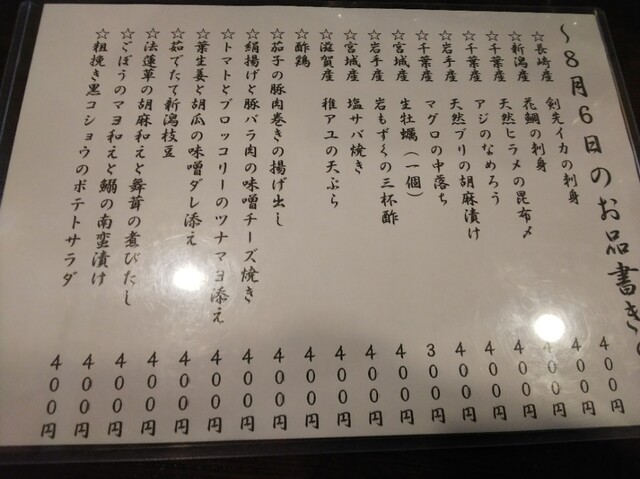 ～８月６日のお品書き～
☆長崎産 剣先イカの刺身 ４００円
☆新潟産 花鯛の刺身 ４００円
☆千葉産 天然ヒラメの昆布〆 ４００円
☆千葉産 アジのなめろう ４００円
☆岩手産 天然ブリの胡麻漬け ４００円
☆千葉産 マグロの中落ち ４００円
☆宮城産 生牡蠣（一個） ３００円
☆岩手産 岩もずくの三杯酢 ４００円
☆宮城産 塩サバ焼き ４００円
☆滋賀産 稚アユの天ぷら ４００円
☆酢鶏 ４００円
☆茄子の豚肉巻きの揚げ出し ４００円
☆絹揚げと豚バラ肉の味噌チーズ焼き ４００円
☆トマトとブロッコリーのツナマヨ添え ４００円
☆葉生姜と胡瓜の味噌ダレ添え ４００円
☆茹でたて新潟枝豆 ４００円
☆法蓮草の胡麻和えと舞茸の煮びたし ４００円
☆ごぼうのマヨ和えと鰯の南蛮漬け ４００円
☆粗挽き黒コショウのポテトサラダ ４００円